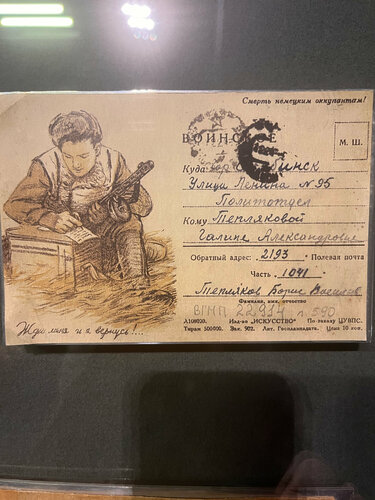 Смерть немецким оккупантам!
ВОИНСКОЕ
М. Ш.
Куда
Улица Ленина № 95
Политотдел
Кому Тепляковой
Галине Александровне
Обратный адрес: 2193 Полевая почта
Часть 1041
Тепляков Борис
Фамилия, имя, отчество
ВГНП 22937 л. 590
Л108020. Изд-во „ИСКУССТВО“ По заказу ЦУВПС.
Тираж 500000. Зак. 902. Лит. Госпланиздата. Цена 10 коп.
Жди меня и я вернусь!...